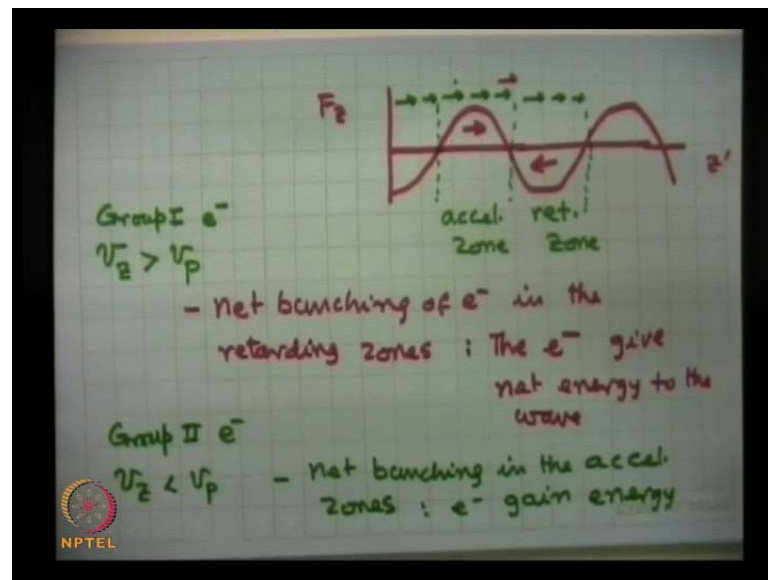 F_z
z'
accel. ret.
zone zone
Group I e⁻
v_z > v_p
- net bunching of e⁻ in the
retarding zones : The e⁻ give
net energy to the
wave
Group II e⁻
v_z < v_p - net bunching in the accel.
zones : e⁻ gain energy
NPTEL